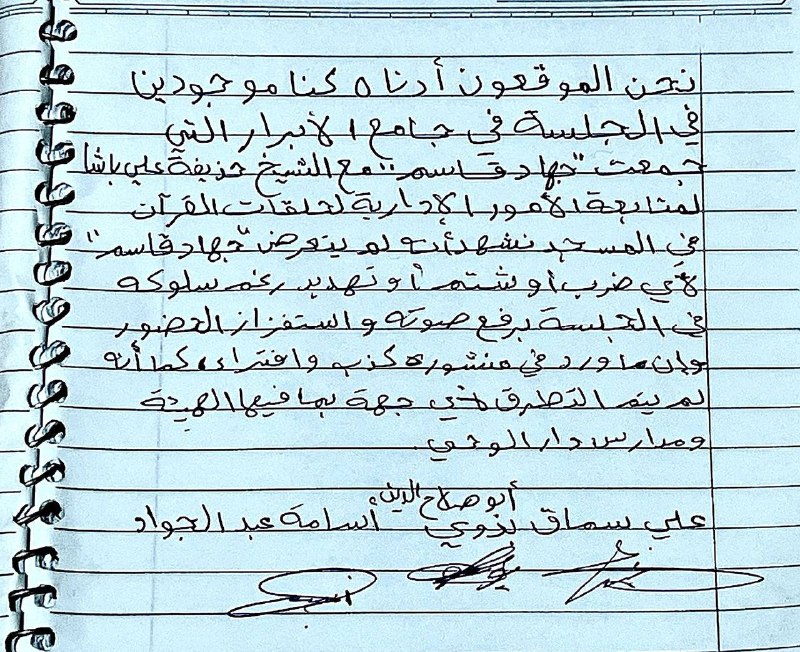 نحن الموقعون أدناه كنا موجودين
في الجلسة في جامع الأبرار التي
جمعت "جهاد قاسم" مع الشيخ حذيفة علي باشا
لمتابعة الأمور الإدارية لحلقات القرآن
في المسجد نشهد أنه لم يتعرض "جهاد قاسم"
لأي ضرب أو شتم أو تهديد رغم سلوكه
في الجلسة برفع صوته واستفزاز الحضور
وإن ما ورد في منشوره كذب وافتراء، كما أنه
لم يتم التطرق لأي جهة بما فيها الهيئة
ومدارس دار الوحي.
أبو صلاح الدين
علي سماق بذوي أسامة عبد الجواد